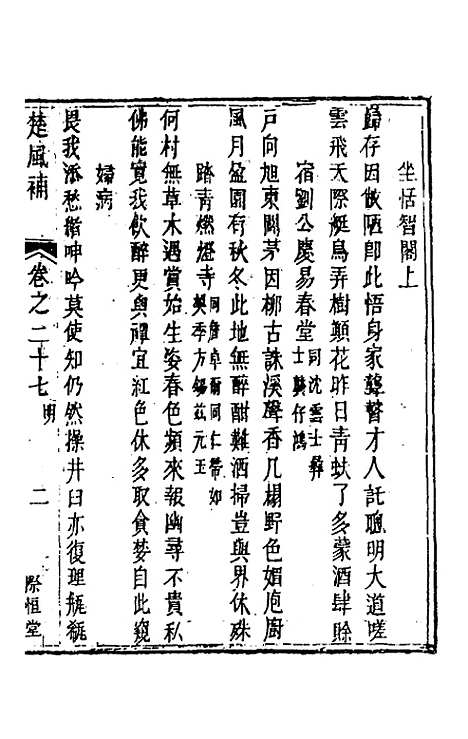 坐恬智閣上
歸存因倣陋即此悟身家聾瞽才人託聰明大道嗟
雲飛天際艇鳥弄樹顛花昨日青蚨了多蒙酒肆賒
宿劉公慶易春堂同沈雲士彝士龔仔鴻
戸向旭東開茅因柳古誅溪聲香几榻野色媚庖廚
風月盈園有秋冬此地無醉酣難洒掃豈與界休殊
踏青燃燈寺同詹卓爾同仁帶如樊季方錫茲元玉
何村無草木遇賞始生姿春色頻來報幽尋不貴私
佛能寛我飲醉更與禪宜紅色休多取貪婪自此窺
婦病
畏我添愁緒呻吟莫使知仍然操井臼亦復理瓶
楚風補 卷之二十七 明 二 際恒堂